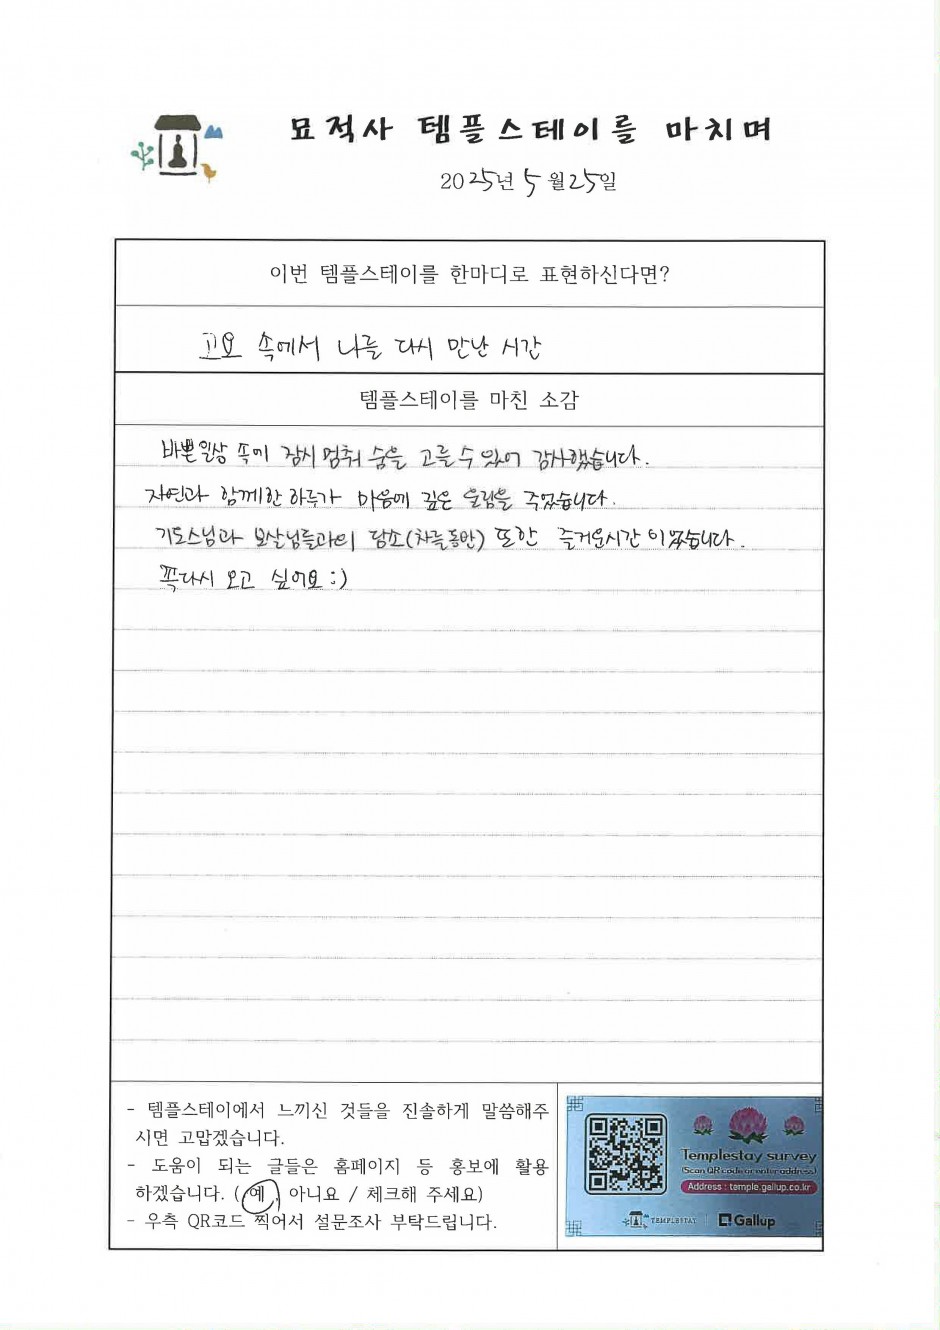 묘적사 템플스테이를 마치며
2025년 5월 25일
이번 템플스테이를 한마디로 표현하신다면?
고요 속에서 나를 다시 만난 시간
템플스테이를 마친 소감
바쁜 일상 속에 잠시 멈춰 숨을 고를 수 있어 감사했습니다.
자연과 함께한 하루가 마음에 깊은 울림을 주었습니다.
기도스님과 보살님들과의 담소(차를동안) 또한 즐거운시간 이었습니다.
꼭다시 오고 싶어요 :)
- 템플스테이에서 느끼신 것들을 진솔하게 말씀해주
시면 고맙겠습니다.
- 도움이 되는 글들은 홈페이지 등 홍보에 활용
하겠습니다. ( 예, 아니요 / 체크해 주세요)
- 우측 QR코드 찍어서 설문조사 부탁드립니다.
Templestay survey
(Scan QR code or enter address)
Address : temple.gallup.co.kr
TEMPLESTAY Gallup